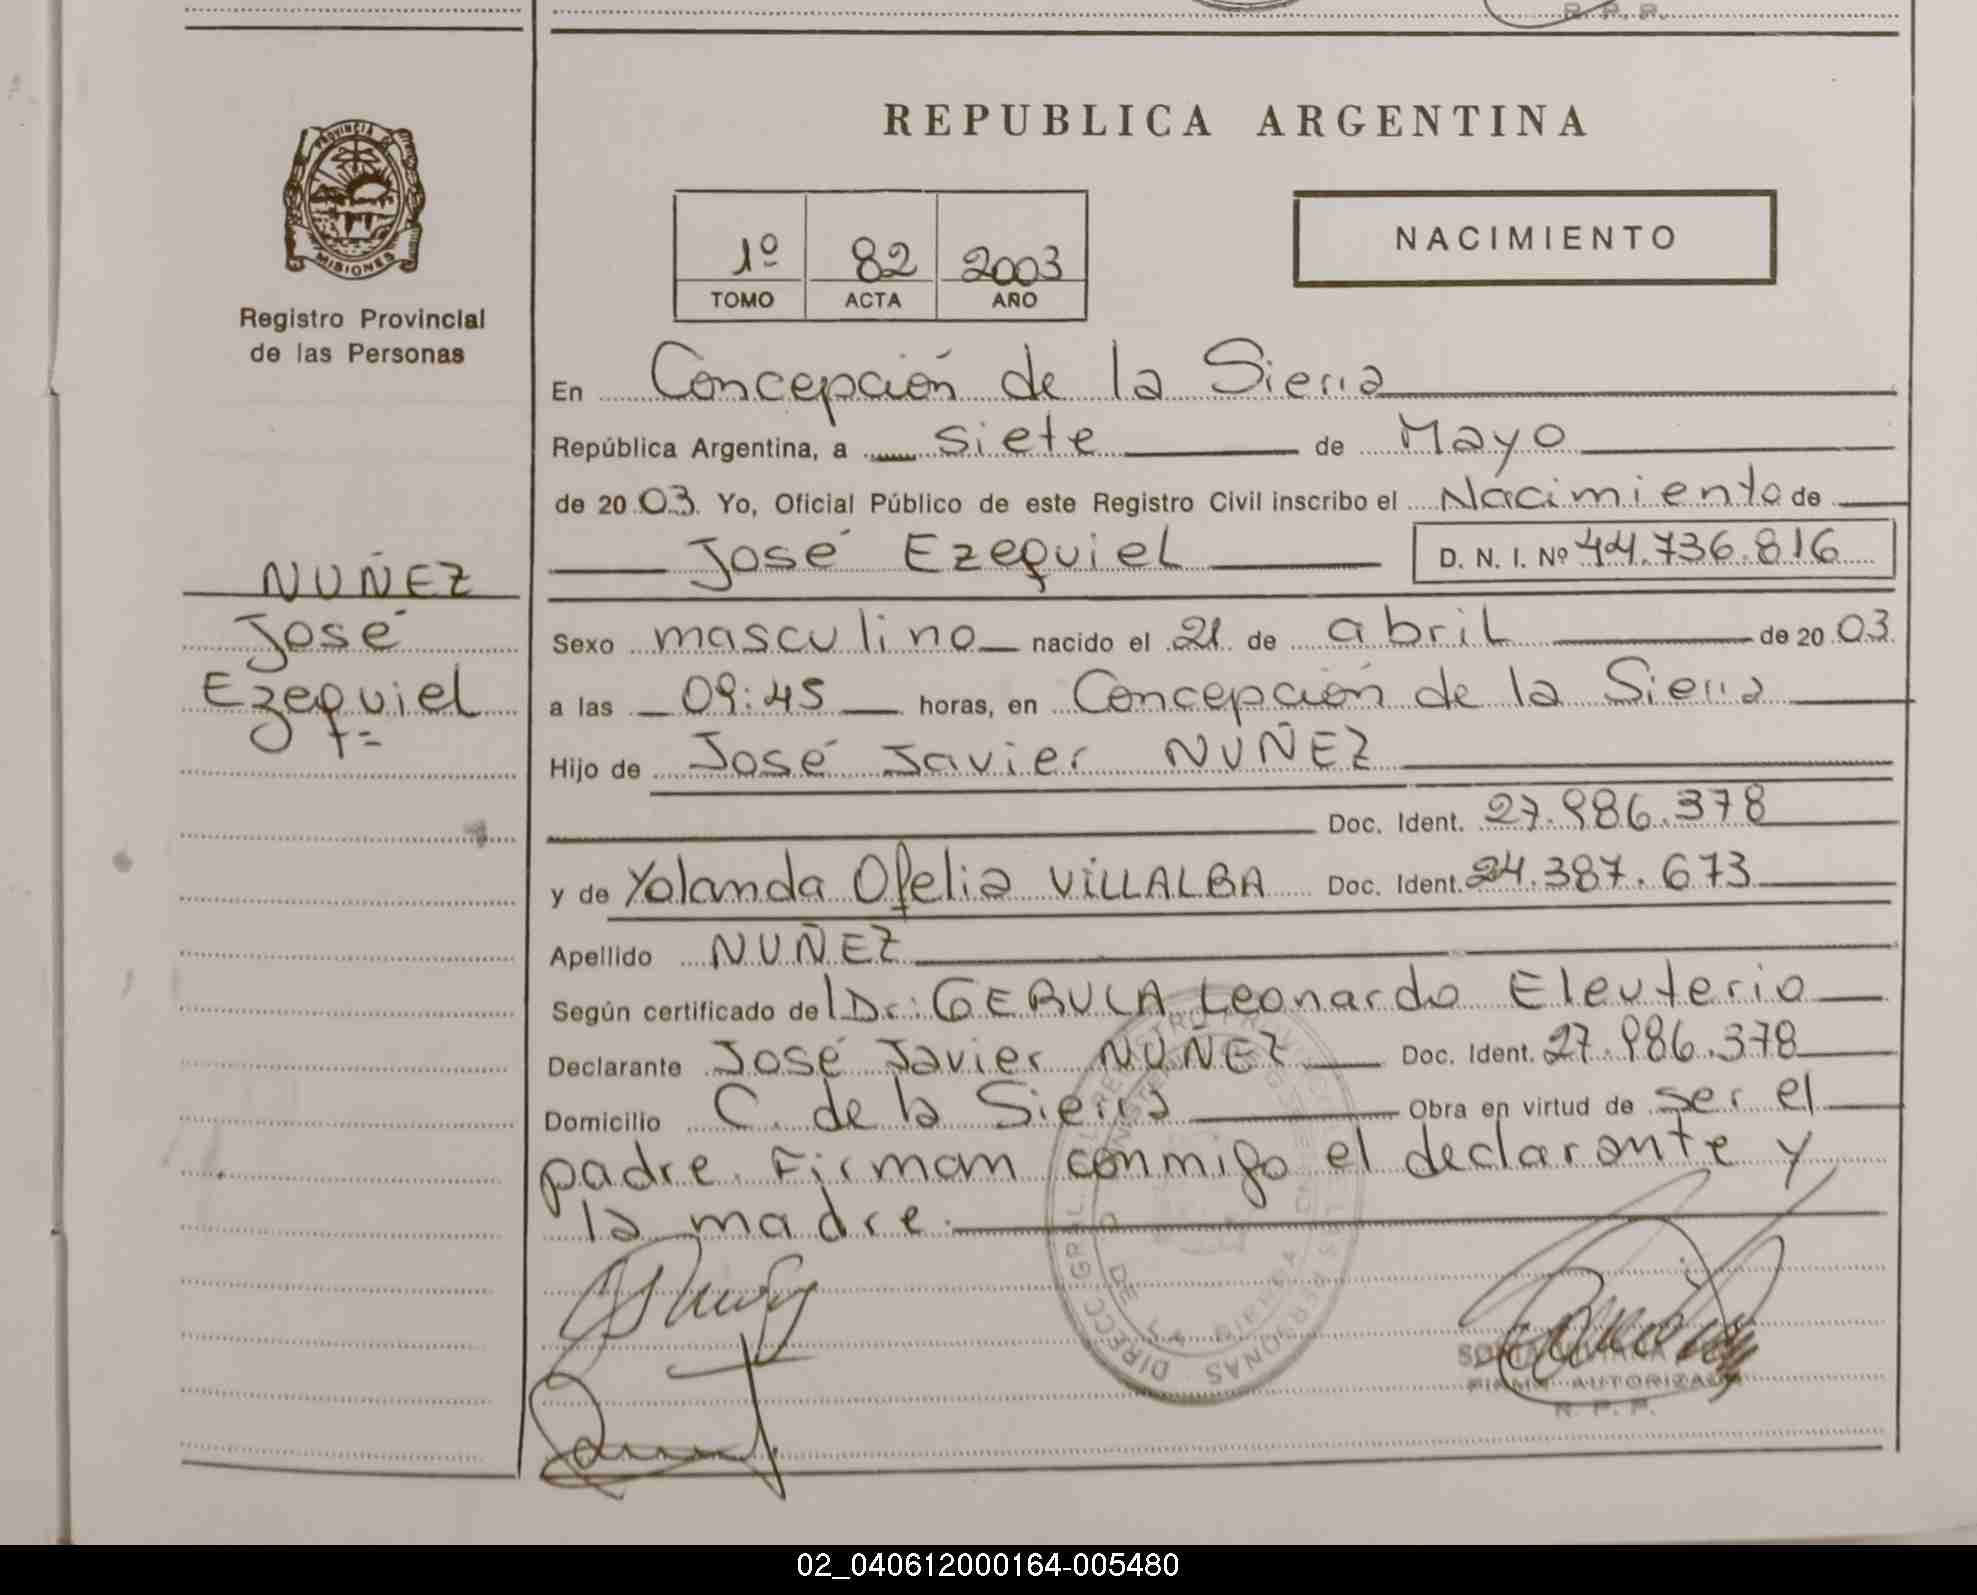 R. P. P.
PROVINCIA DE
MISIONES
Registro Provincial
de las Personas
REPUBLICA ARGENTINA
1º 82 2003
TOMO ACTA AÑO
NACIMIENTO
En Concepción de la Sierra
República Argentina, a siete de Mayo
de 2003. Yo, Oficial Público de este Registro Civil inscribo el Nacimiento de
José Ezequiel D. N. I. Nº 44.736.816
NUÑEZ
José
Ezequiel
Sexo masculino nacido el 21 de abril de 2003
a las 09:45 horas, en Concepción de la Sierra
Hijo de José Javier NUÑEZ
Doc. Ident. 27.986.378
y de Yolanda Ofelia VILLALBA Doc. Ident. 24.387.673
Apellido NUÑEZ
Según certificado del Dr: GEBULA Leonardo Eleuterio
Declarante José Javier NUÑEZ Doc. Ident. 27.986.378
Domicilio C. de la Sierra Obra en virtud de ser el
padre. Firman conmigo el declarante y
la madre.
FIRMA AUTORIZADA
R. P. P.
02_040612000164-005480